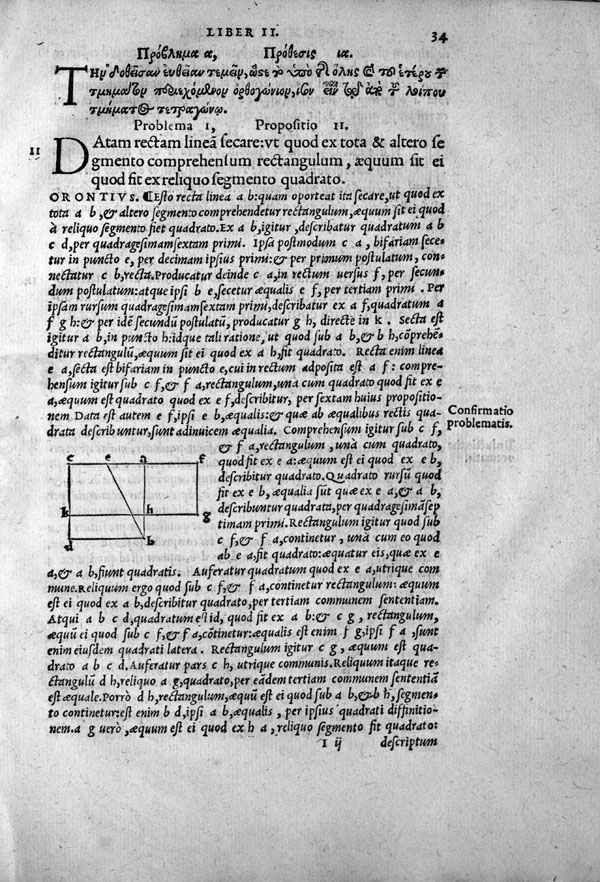 LIBER II.
34
Πρόβλημα α, Πρόθεσις ια.
Τὴν δοθεῖσαν εὐθεῖαν τεμεῖν, ὥστε τὸ ὑπὸ τῆς ὅλης καὶ τοῦ ἑτέρου τῶν
τμημάτων περιεχόμενον ὀρθογώνιον, ἴσον εἶναι τῷ ἀπὸ τοῦ λοιποῦ
τμήματος τετραγώνῳ.
Problema 1, Propositio 11.
11
DAtam rectam lineã secare: vt quod ex tota & altero se
gmento comprehensum rectangulum, æquum sit ei
quod fit ex reliquo segmento quadrato.
ORONTIVS. ¶Esto recta linea a b: quam oporteat ita secare, ut quod ex
tota a b, & altero segmento comprehendetur rectangulum, æquum sit ei quod
à reliquo segmento fiet quadrato. Ex a b, igitur, describatur quadratum a b
c d, per quadragesimamsextam primi. Ipsa postmodum c a, bifariam sece-
tur in puncto e, per decimam ipsius primi: & per primum postulatum, con-
nectatur c b, recta. Producatur deinde c a, in rectum versus f, per secun-
dum postulatum: atque ipsi b e, secetur æqualis e f, per tertiam primi. Per
ipsam rursum quadragesimamsextam primi, describatur ex a f, quadratum a
f g h: & per idẽ secundũ postulatũ, producatur g h, directè in k. Secta est
igitur a b, in puncto h: idque tali ratione, ut quod sub a b, & b h, cõprehẽ-
ditur rectangulũ, æquum sit ei quod ex a h, fit quadrato. Recta enim linea
e a, secta est bifariam in puncto e, cui in rectum adposita est a f: compre-
hensum igitur sub c f, & f a, rectangulum, una cum quadrato quod fit ex e
a, æquum est quadrato quod ex e f, describitur, per sextam huius propositio-
nem. Data est autem e f, ipsi e b, æqualis: & quæ ab æqualibus rectis qua-
drata describuntur, sunt adinuicem æqualia. Comprehensum igitur sub c f,
Confirmatio
problematis.
& f a, rectangulum, unà cum quadrato,
quod fit ex e a: æquum est ei quod ex e b,
describitur quadrato. Quadrato rursũ quod
fit ex e b, æqualia sũt quæ ex e a, & a b,
describuntur quadrata, per quadragesimãsep
timam primi. Rectangulum igitur quod sub
c f, & f a, continetur, unà cum eo quod
ab e a, fit quadrato: æquatur eis, quæ ex e
c e a f
k h g
d b
a, & a b, fiunt quadratis. Auferatur quadratum quod ex e a, utrique com
mune. Reliquum ergo quod sub c f, & f a, continetur rectangulum: æquum
est ei quod ex a b, describitur quadrato, per tertiam communem sententiam.
Atqui a b c d, quadratum est id, quod fit ex a b: & c g, rectangulum,
æquũ ei quod sub c f, & f a, cõtinetur: æqualis est enim f g, ipsi f a, sunt
enim eiusdem quadrati latera. Rectangulum igitur c g, æquum est qua-
drato a b c d. Auferatur pars c h, utrique communis. Reliquum itaque re-
ctangulũ d h, reliquo a g, quadrato, per eãdem tertiam communem sententiã
est æquale. Porrò d h, rectangulum, æquũ est ei quod sub a b, & b h, segmen-
to continetur: est enim b d, ipsi a b, æqualis, per ipsius quadrati diffinitio-
nem. a g uerò, æquum est ei quod ex h a, reliquo segmento fit quadrato:
I ij
descriptum